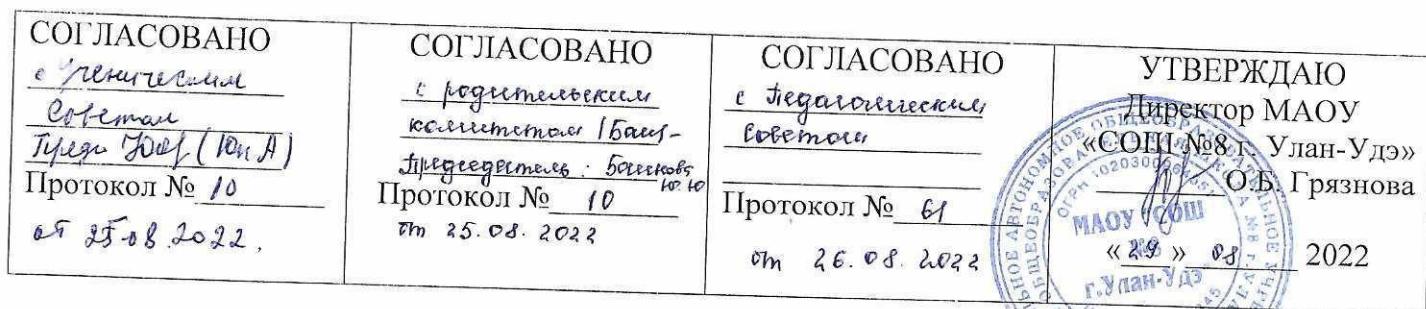 СОГЛАСОВАНО
с Ученическим
Советом
Протокол № 10
от 25.08.2022.
СОГЛАСОВАНО
с родительским
комитетом
Председатель: Башкова
Ю.Ю
Протокол № 10
от 25.08.2022
СОГЛАСОВАНО
с Педагогическим
Советом
Протокол № 61
от 26.08.2022
УТВЕРЖДАЮ
Директор МАОУ
«СОШ №8 г. Улан-Удэ»
О.Б. Грязнова
«29» 08 2022
МАОУ "СОШ
№8
г.Улан-Удэ